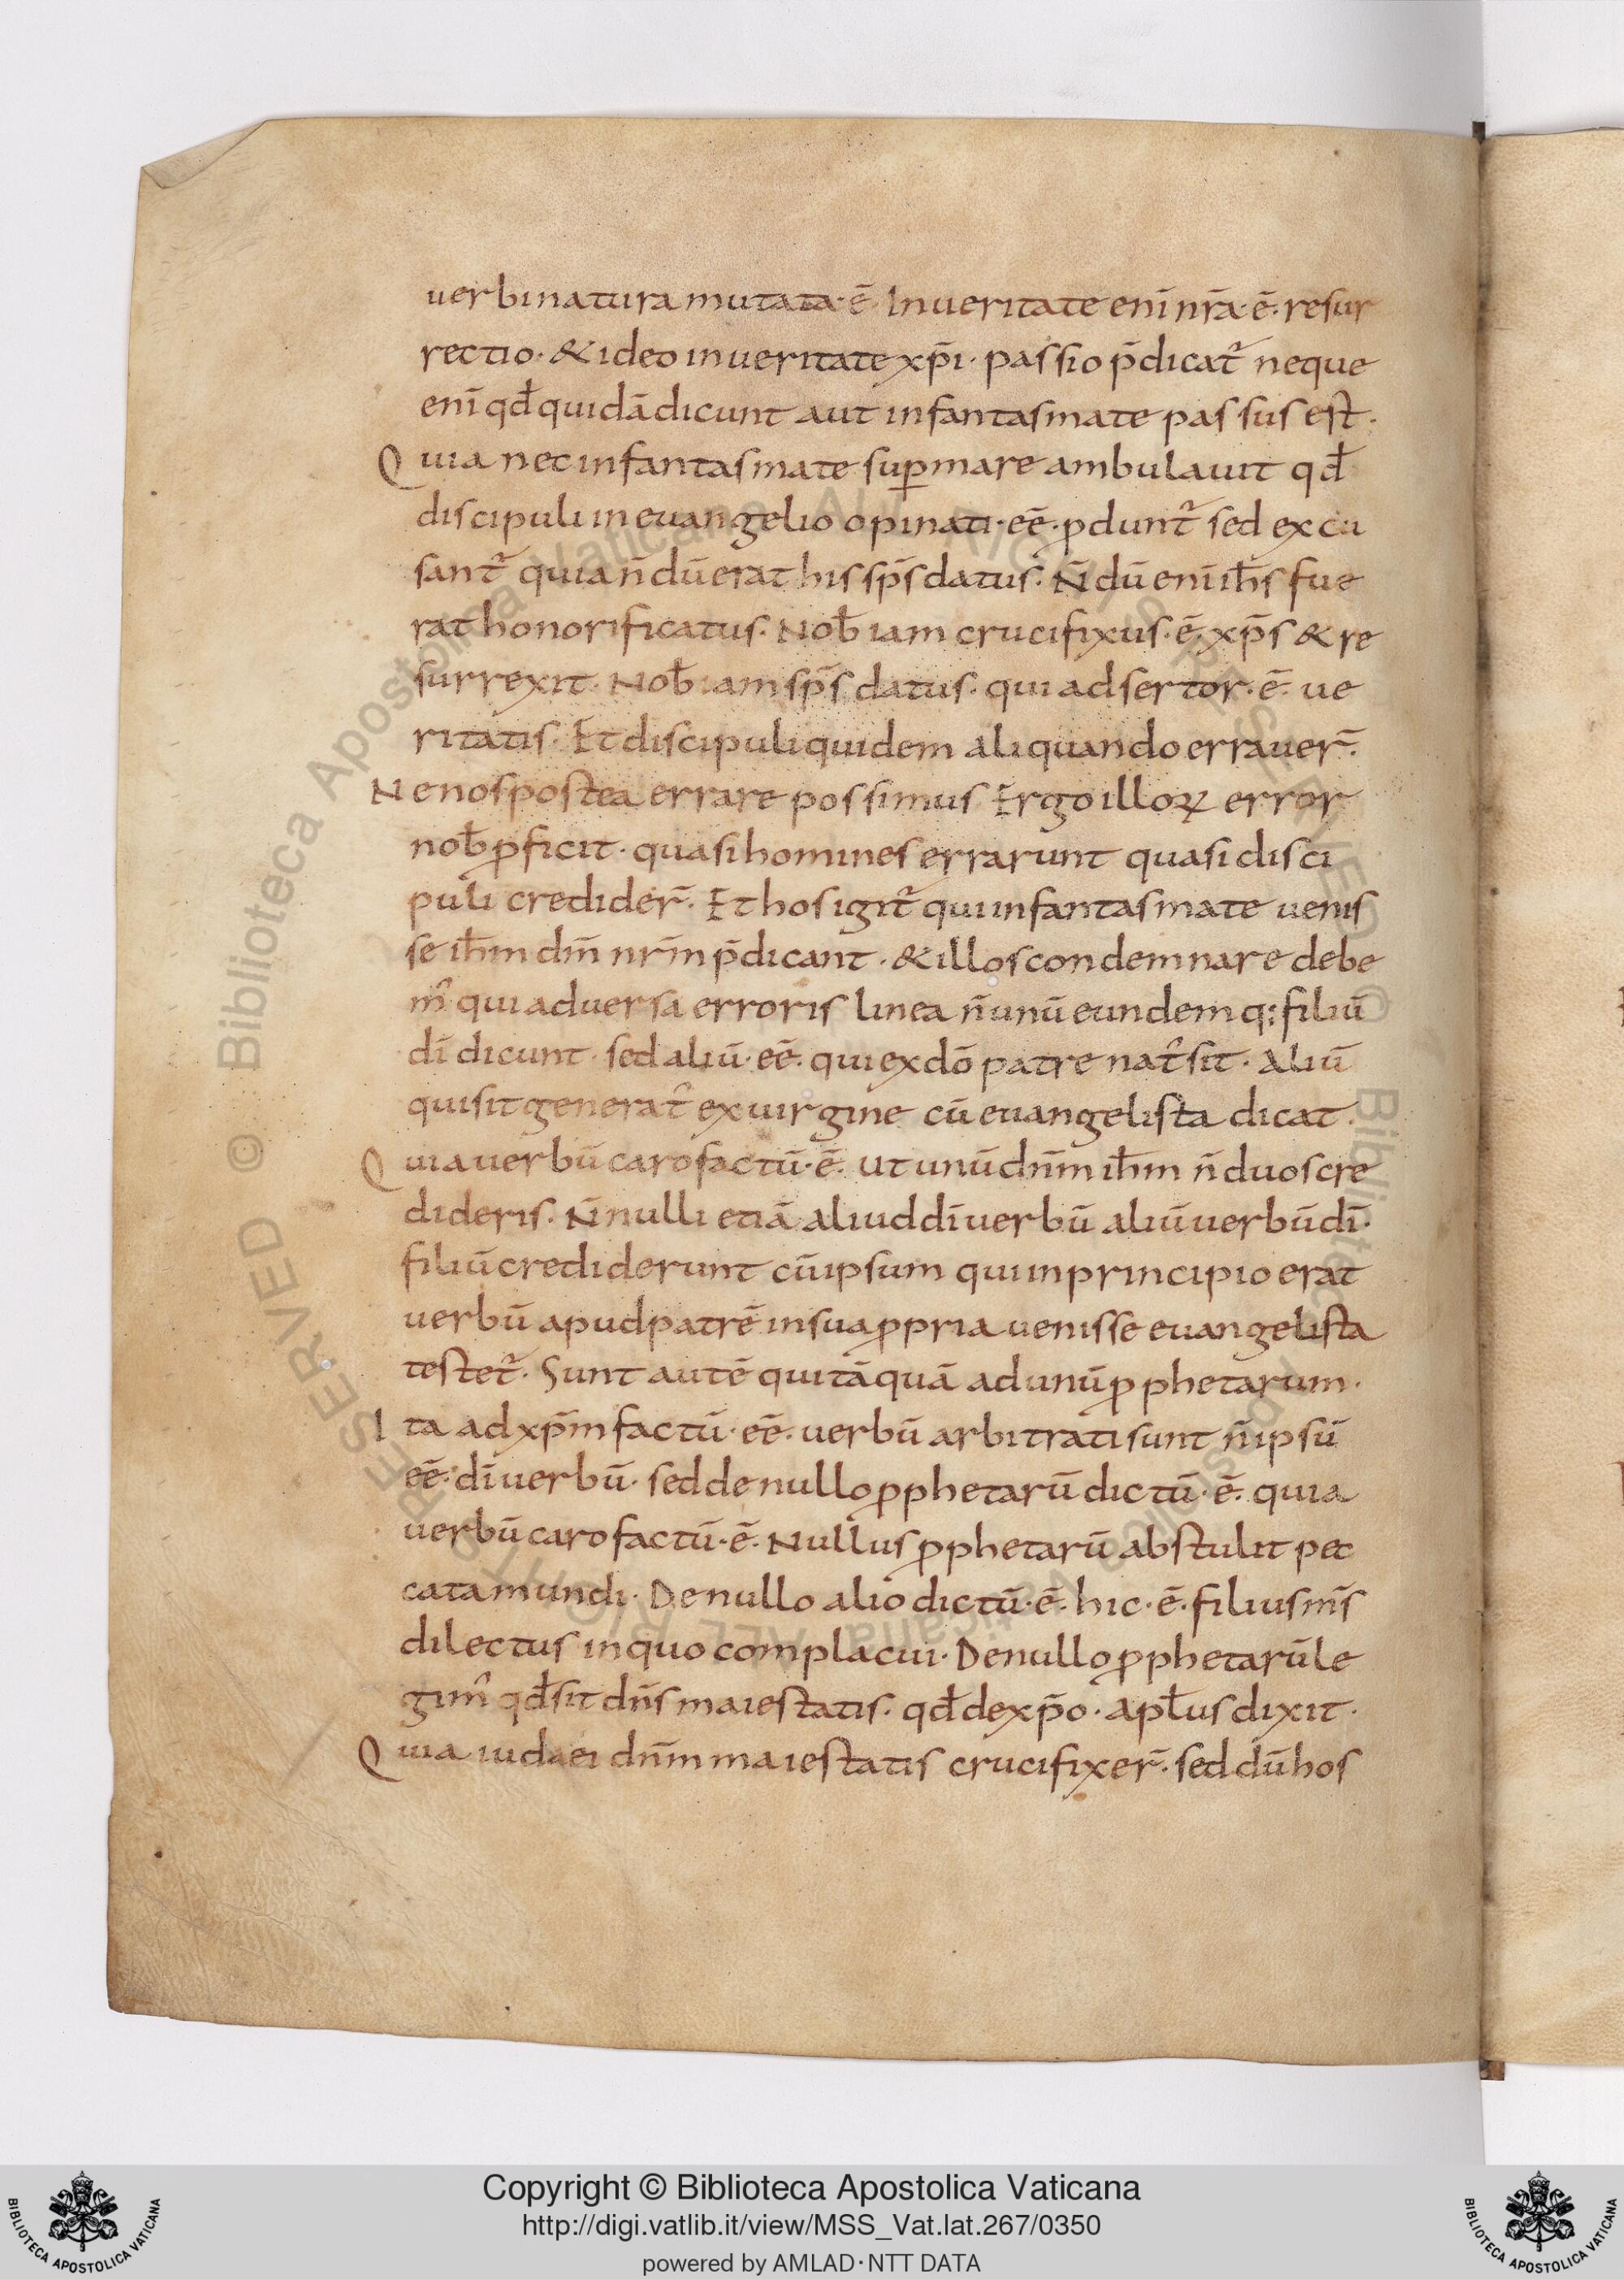 uerbi natura mutata·ē· In ueritate enī nr̄a·ē· resur
rectio· & ideo in ueritate xp̄i· passio p̄dicat᷒ neque
enī qđ quidā dicunt aut in fantasmate passus est·
Quia nec in fantasmate suꝑ mare ambulauit qđ
discipuli in euangelio opinati·eē·ꝓdunt᷒ sed excu
sant᷒ quia n̄dū erat his sp̄s datus· N̄dū enī ih̄s fue
rat honorificatus· Nob̄ iam crucifixus·ē·xp̄s & re
surrexit· Nob̄ iam sp̄s datus· qui adsertor·ē· ue
ritatis· Et discipuli quidem aliquando errauer̄·
Ne nos postea errare possimus Ergo illoꝝ error
nob̄ ꝓficit· quasi homines errarunt quasi disci
puli credider̄· Et hos igit᷒ qui in fantasmate uenis
se ih̄m dm̄ nrm̄ p̄dicant· & illos condemnare debe
m᷒ qui aduersa erroris linea n̄ unū eundemq; filiū
dī dicunt· sed aliū·eē· qui ex dō patre nat᷒ sit· Aliū
qui sit generat᷒ ex uirgine cū euangelista dicat·
Quia uerbū caro factū·ē· Ut unū dn̄m ih̄m n̄ duos cre
dideris· N̄nulli etiā aliud dī uerbū aliū uerbū dī·
filiū crediderunt cū ipsum qui in principio erat
uerbū apud patrē in sua ꝓpria uenisse euangelista
testet᷒· Sunt autē qui tāquā ad unū ꝓphetarum·
Ita ad xp̄m factū·eē· uerbū arbitrati sunt n̄ ipsū
eē· dī uerbū· sed de nullo ꝓphetarū dictū·ē· quia
uerbū caro factū·ē· Nullus ꝓphetarū abstulit pec
cata mundi· De nullo alio dictū·ē· hic·ē· filius ms̄
dilectus in quo complacui· De nullo ꝓphetarū le
gim᷒ qđ sit dn̄s maiestatis· qđ de xp̄o· apłus dixit·
Quia iudaei dn̄m maiestatis crucifixer̄· sed dū hos
Copyright © Biblioteca Apostolica Vaticana
http://digi.vatlib.it/view/MSS_Vat.lat.267/0350
powered by AMLAD·NTT DATA
BIBLIOTECA APOSTOLICA VATICANA
BIBLIOTECA APOSTOLICA VATICANA